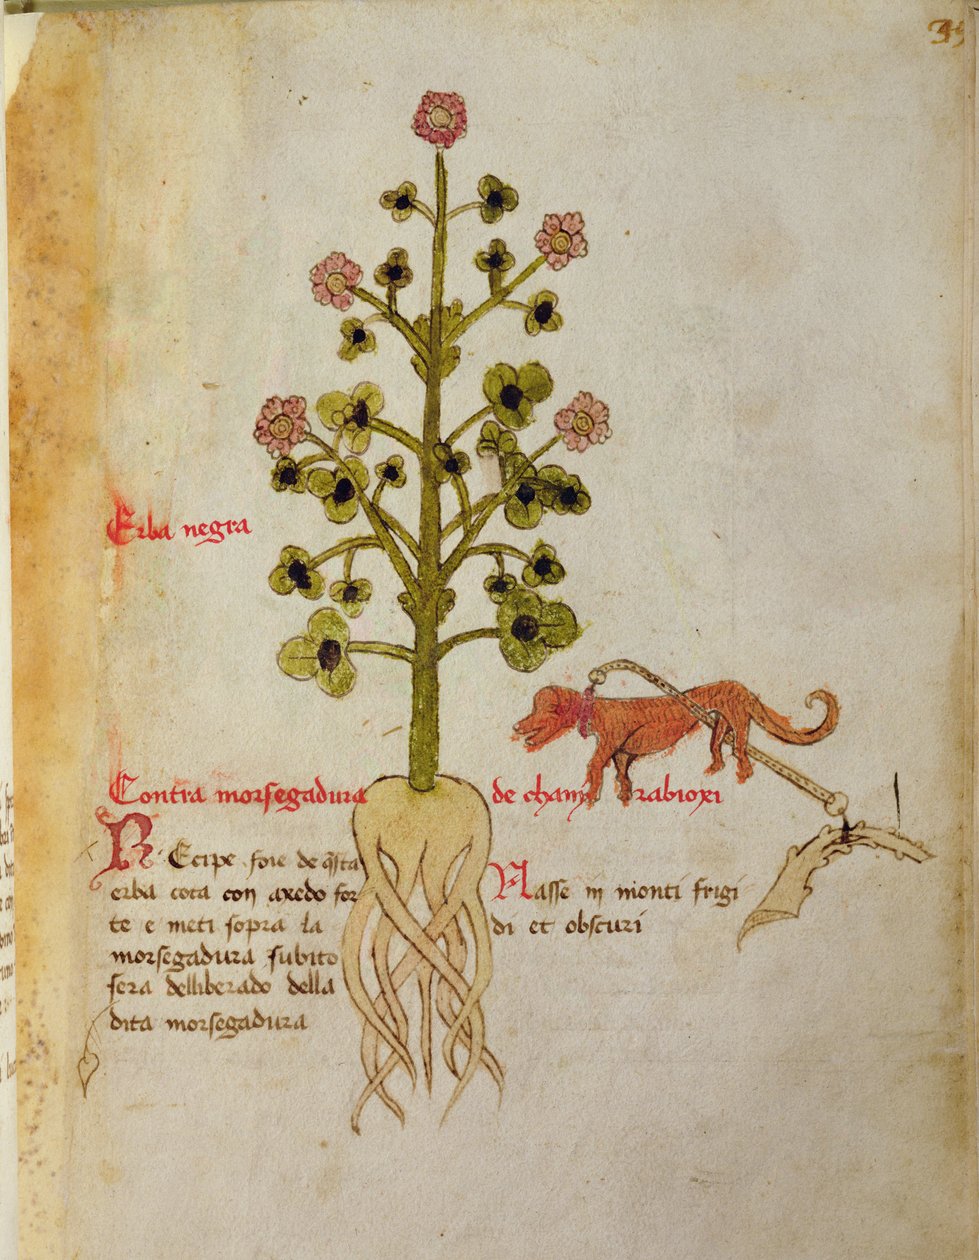 Erba negra
Contra morsegadura de chanj rabioxi
REcipe foie de q̄sta
erba cota con axedo for
te e meti sopra la
morsegadura subito
sera delliberado della
dita morsegadura
Nasse in monti frigi
di et obscuri